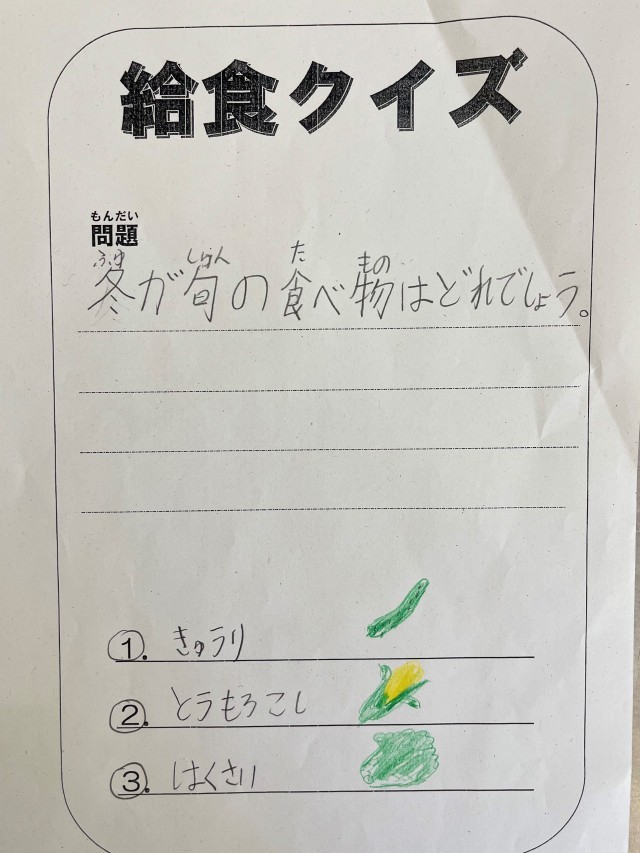 給食クイズ
もんだい
問題
ふゆ しゅん た もの
冬が旬の食べ物はどれでしょう。
①. きゅうり
②. とうもろこし
③. はくさい